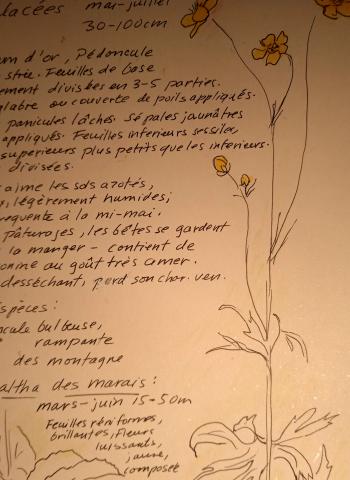 lacées mai-juillet
30-100cm
d'or, Pédoncule
strié. Feuilles de base
ement divisées en 3-5 parties.
glabre ou couverte de poils appliqués.
panicules lâches. sépales jaunâtres
appliqués. Feuilles inferieurs sessiles,
superieures plus petits que les inferieurs.
divisées.
aime les sols azotés,
légèrement humides;
requente à la mi-mai.
pâturages, les bêtes se gardent
la manger - contient de
onine au goût très amer.
desséchant, perd son char. ven.
spèces:
ncule bulbeuse,
rampante
des montagne
altha des marais:
mars-juin 15-50m
Feuilles réniformes,
brillantes, Fleurs
luissants,
jaune,
composée